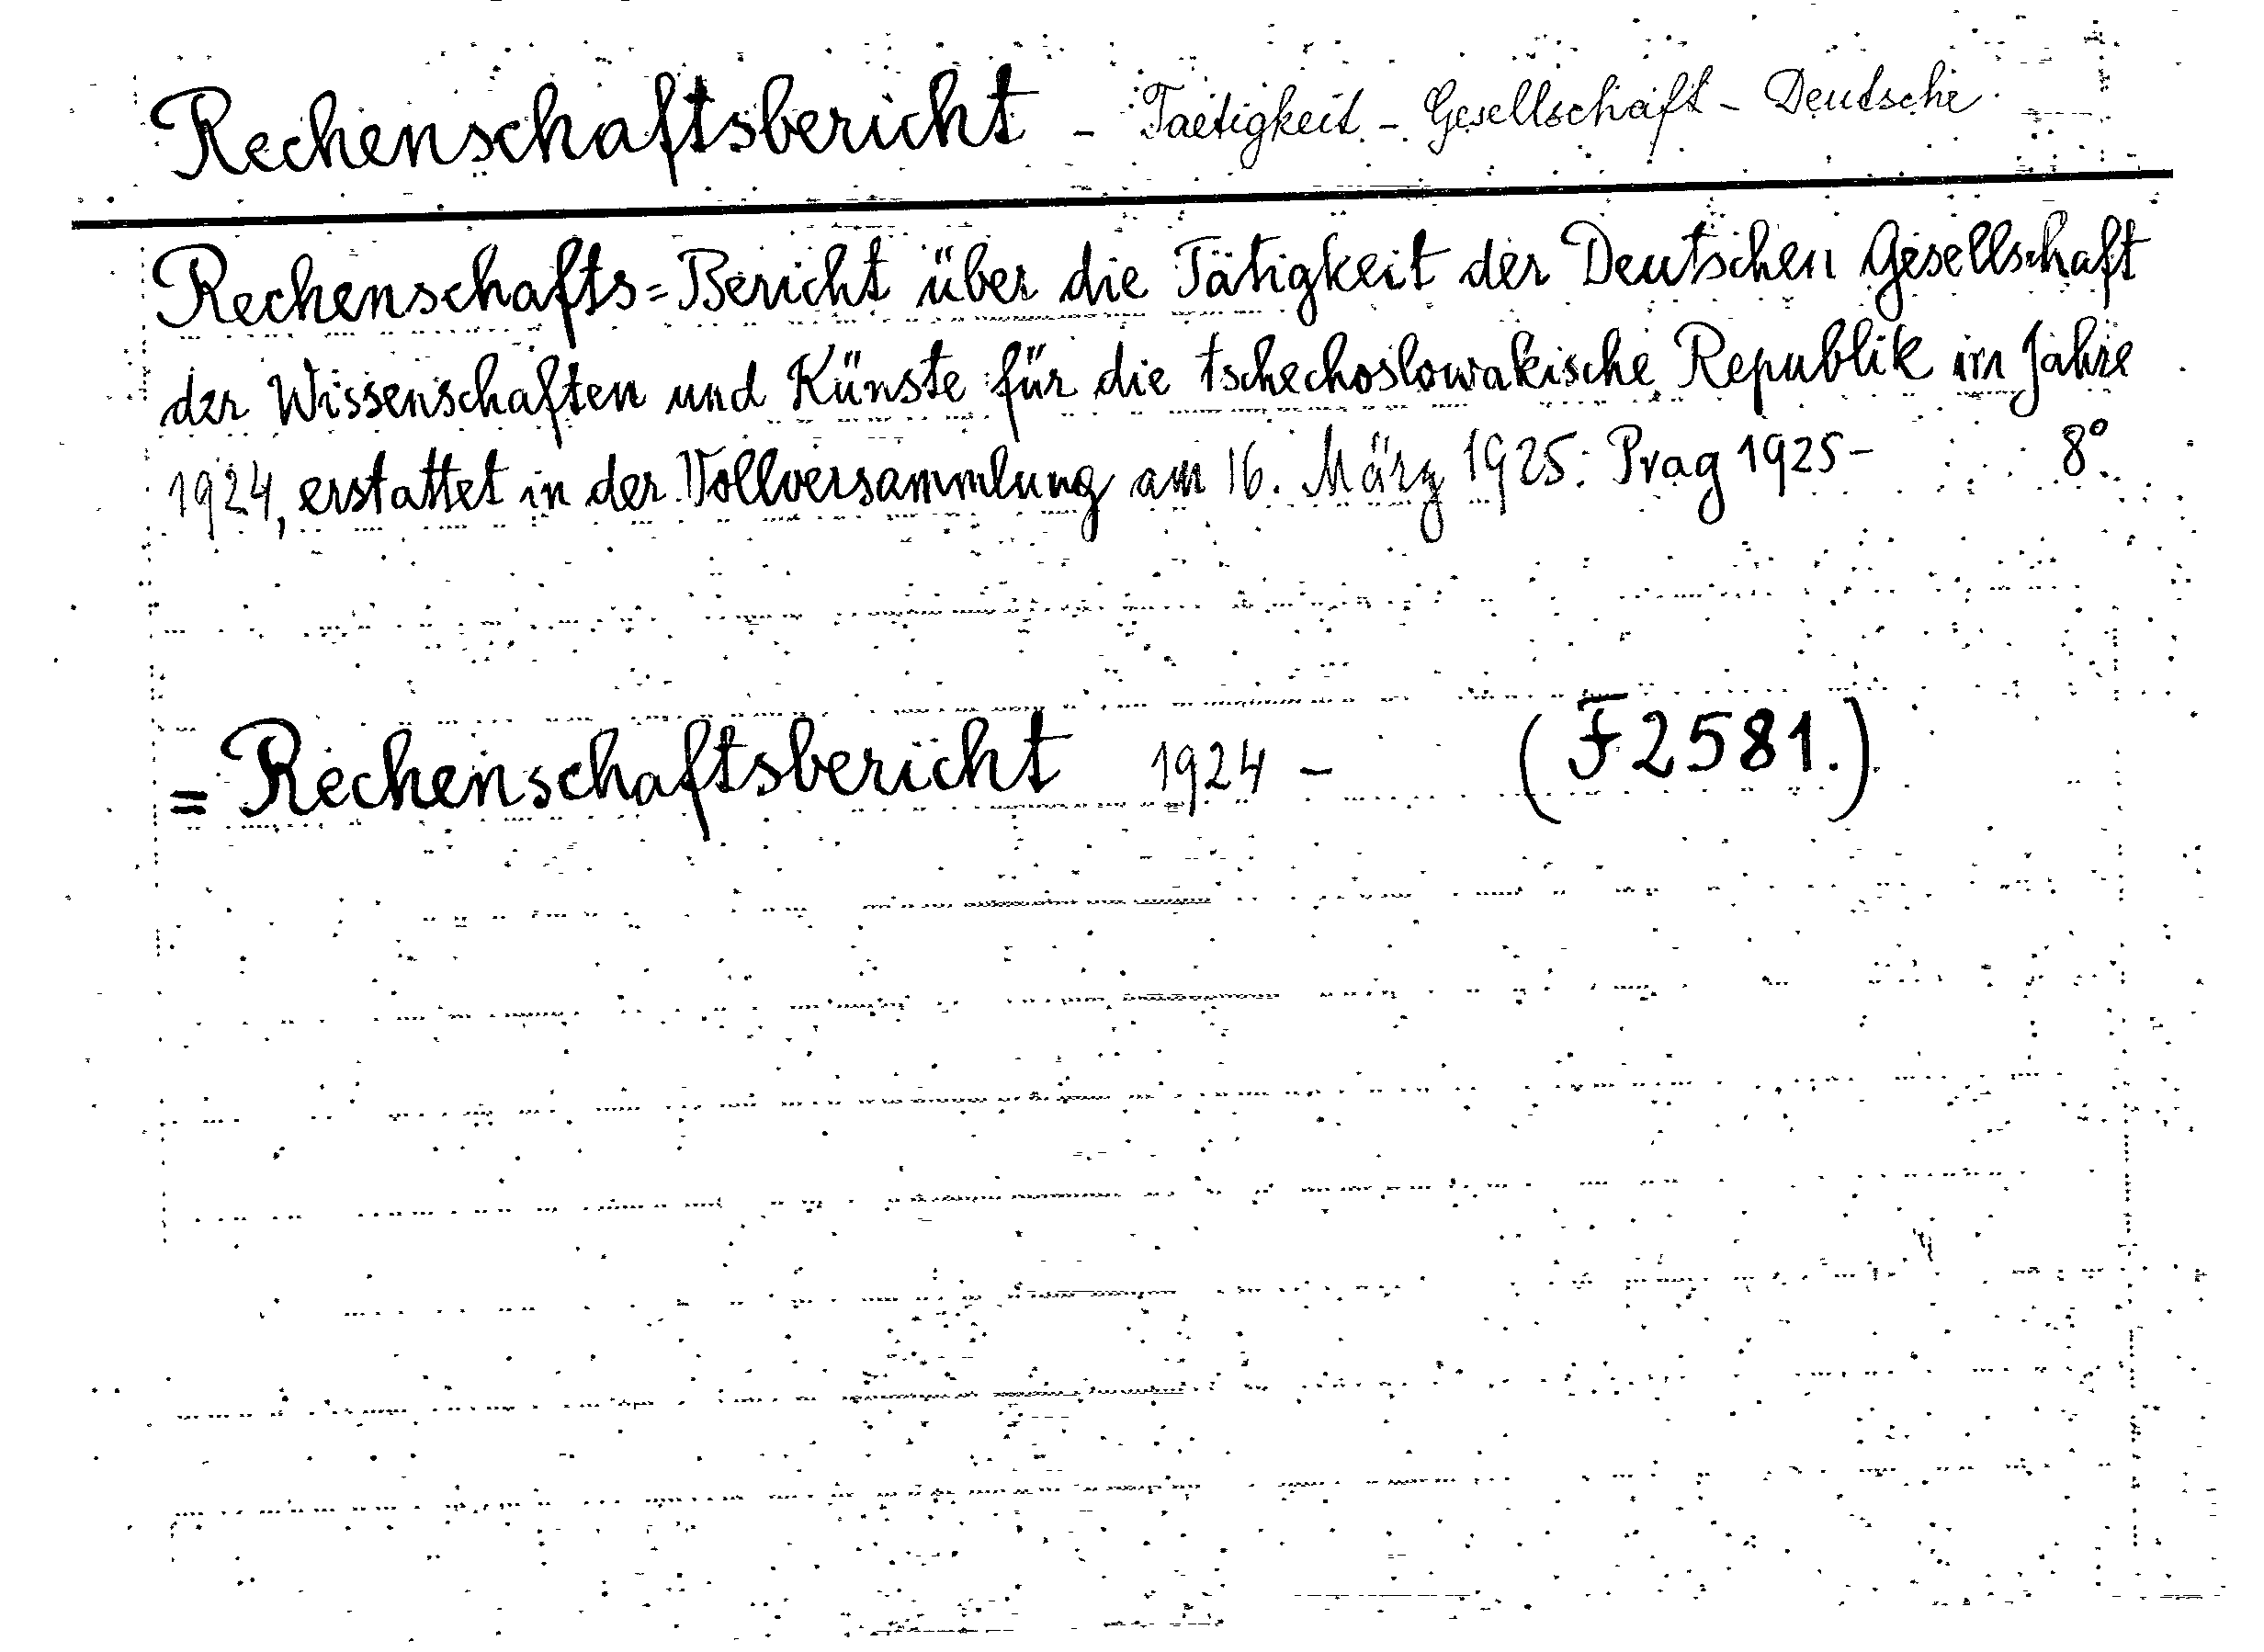 Rechenschaftsbericht - Taetigkeit - Gesellschaft - Deutsche
Rechenschafts=Bericht über die Tätigkeit der Deutschen Gesellschaft
der Wissenschaften und Künste für die tschechoslowakische Republik im Jahre
1924, erstattet in der Vollversammlung am 16. März 1925. Prag 1925- 8°.
= Rechenschaftsbericht 1924 - (F 2581.)